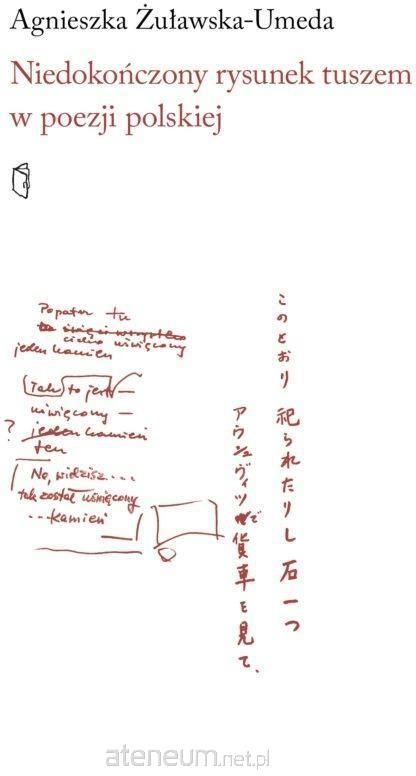 Agnieszka Żuławska-Umeda
Niedokończony rysunek tuszem
w poezji polskiej
Popatrz tu
cicho uświęcony
jeden kamień
Tak to jest
uświęcony —
? jeden kamień
ten
No, widzisz ...
tak został uświęcony
... kamień
このとおり 祀られたりし 石一つ
アウシュヴィツで貨車を見て、
ateneum.net.pl